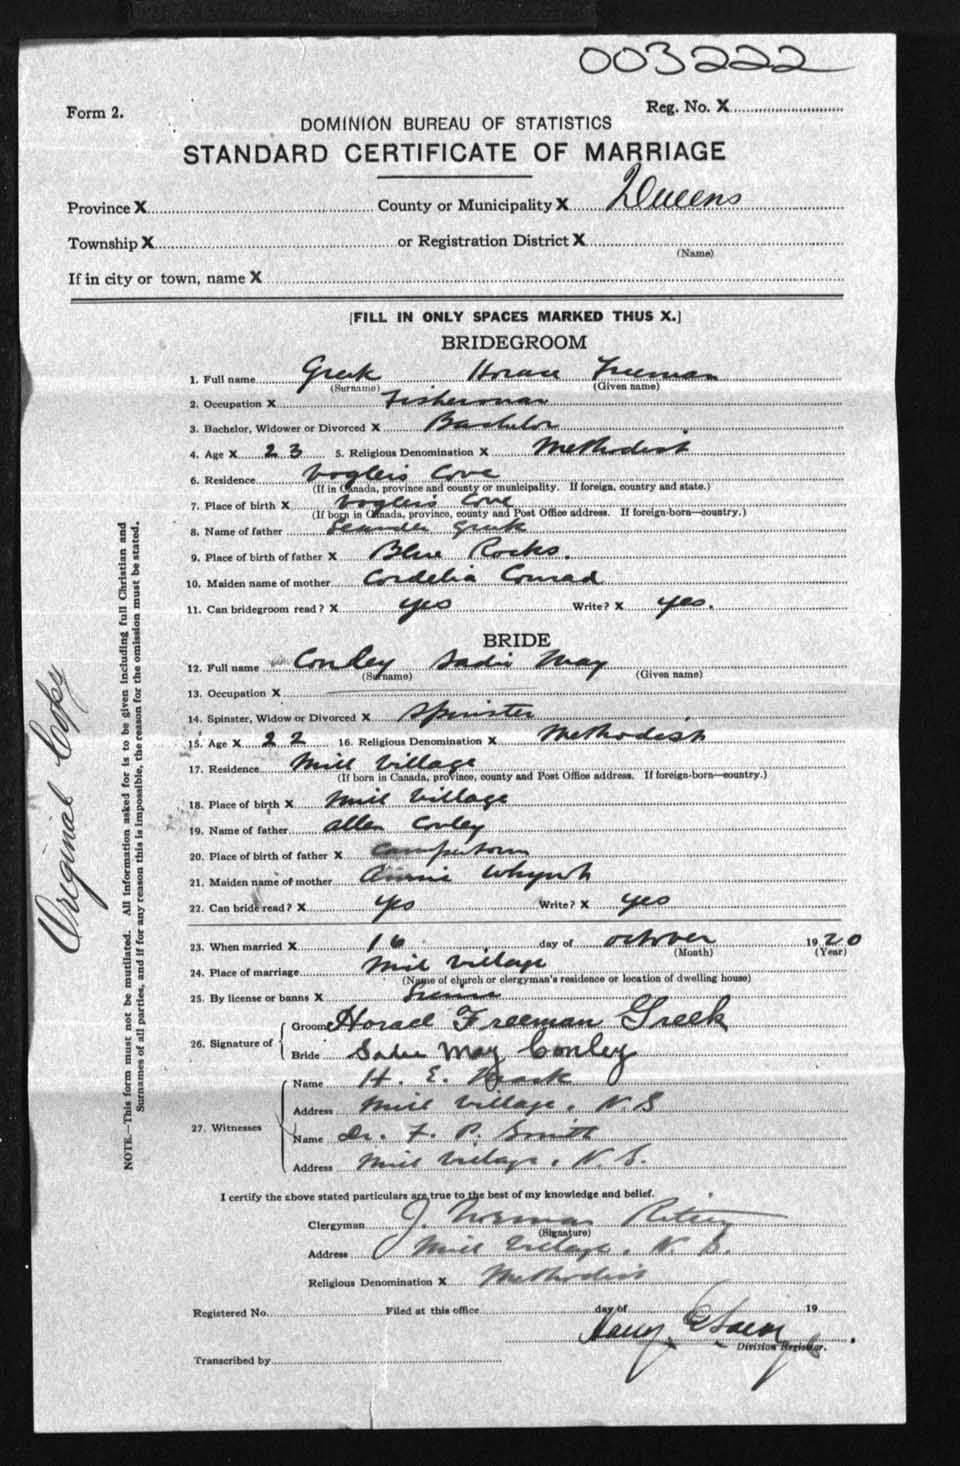 003222
Form 2.
Reg. No. X
DOMINION BUREAU OF STATISTICS
STANDARD CERTIFICATE OF MARRIAGE
Province X County or Municipality X Queens
Township X or Registration District X
(Name)
If in city or town, name X
[FILL IN ONLY SPACES MARKED THUS X.]
BRIDEGROOM
1. Full name Greek Horace Freeman
(Surname) (Given name)
2. Occupation X Fisherman
3. Bachelor, Widower or Divorced X Bachelor
4. Age X 23 5. Religious Denomination X Methodist
6. Residence Voglers Cove
(If in Canada, province and county or municipality. If foreign, country and state.)
7. Place of birth X Voglers Cove
(If born in Canada, province, county and Post Office address. If foreign-born—country.)
8. Name of father Leander Greek
9. Place of birth of father X Blue Rocks.
10. Maiden name of mother Cordelia Conrad
11. Can bridegroom read? X yes Write? X yes.
BRIDE
12. Full name Conley Sadie May
(Surname) (Given name)
13. Occupation X
14. Spinster, Widow or Divorced X Spinster
15. Age X 22 16. Religious Denomination X Methodist
17. Residence Mill Village
(If born in Canada, province, county and Post Office address. If foreign-born—country.)
18. Place of birth X Mill Village
19. Name of father Allen Conley
20. Place of birth of father X Camperdown
21. Maiden name of mother Annie Whynot
22. Can bride read? X yes Write? X yes
23. When married X 16 day of October 1920
(Month) (Year)
24. Place of marriage Mill Village
(Name of church or clergyman's residence or location of dwelling house)
25. By license or banns X License
26. Signature of Groom Horace Freeman Greek
Bride Sadie May Conley
27. Witnesses
Name H. E. Mack
Address Mill Village, N.S
Name Dr. F. P. Smith
Address Mill Village, N.S.
I certify the above stated particulars are true to the best of my knowledge and belief.
Clergyman J. Norman
(Signature)
Address Mill Village, N.S.
Religious Denomination X Methodist
Registered No. Filed at this office day of 19
Harry
Division Registrar.
Transcribed by
Original Copy
NOTE.—This form must not be mutilated. All information asked for is to be given including full Christian and
Surnames of all parties, and if for any reason this is impossible, the reason for the omission must be stated.